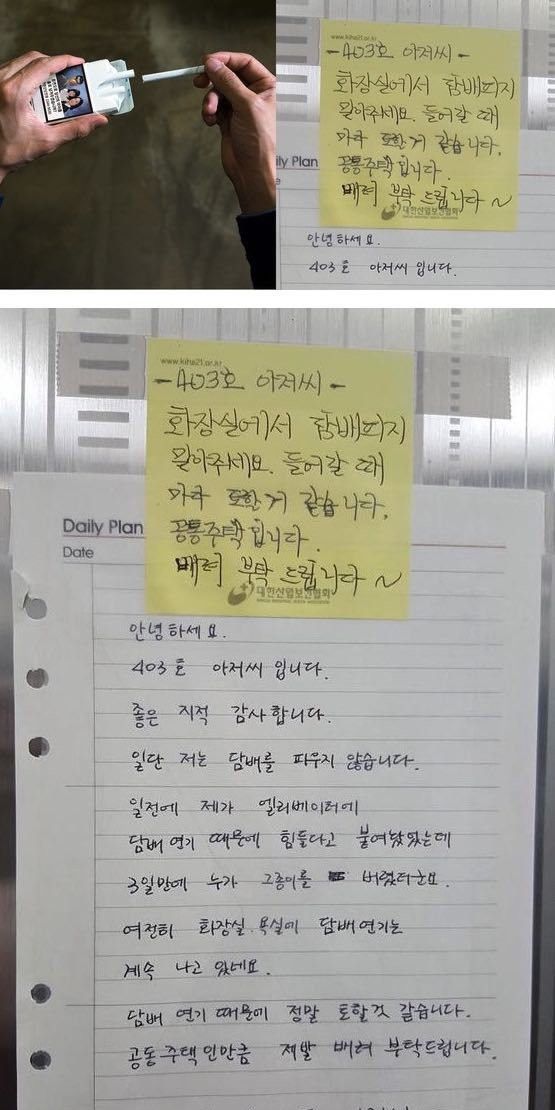 www.kiha21.or.kr
-403호 아저씨-
화장실에서 담배피지
말아주세요. 들어갈 때
마다 토할거 같습니다.
공통주택입니다.
배려 부탁 드립니다~
대한산업보건협회
ily Plan
안녕하세요.
403호 아저씨 입니다.
www.kiha21.or.kr
-403호 아저씨-
화장실에서 담배피지
말아주세요. 들어갈 때
마다 토할거 같습니다.
공통주택입니다.
배려 부탁 드립니다~
대한산업보건협회
Daily Plan
Date
안녕하세요.
403호 아저씨 입니다.
좋은 지적 감사합니다.
일단 저는 담배를 피우지 않습니다.
일전에 제가 엘리베이터에
담배 연기 때문에 힘들다고 붙여놨었는데
3일만에 누가 그종이를 버렸더군요.
여전히 화장실.욕실에 담배연기는
계속 나고 있네요.
담배 연기 때문에 정말 토할것 같습니다.
공동주택인만큼 제발 배려 부탁드립니다.